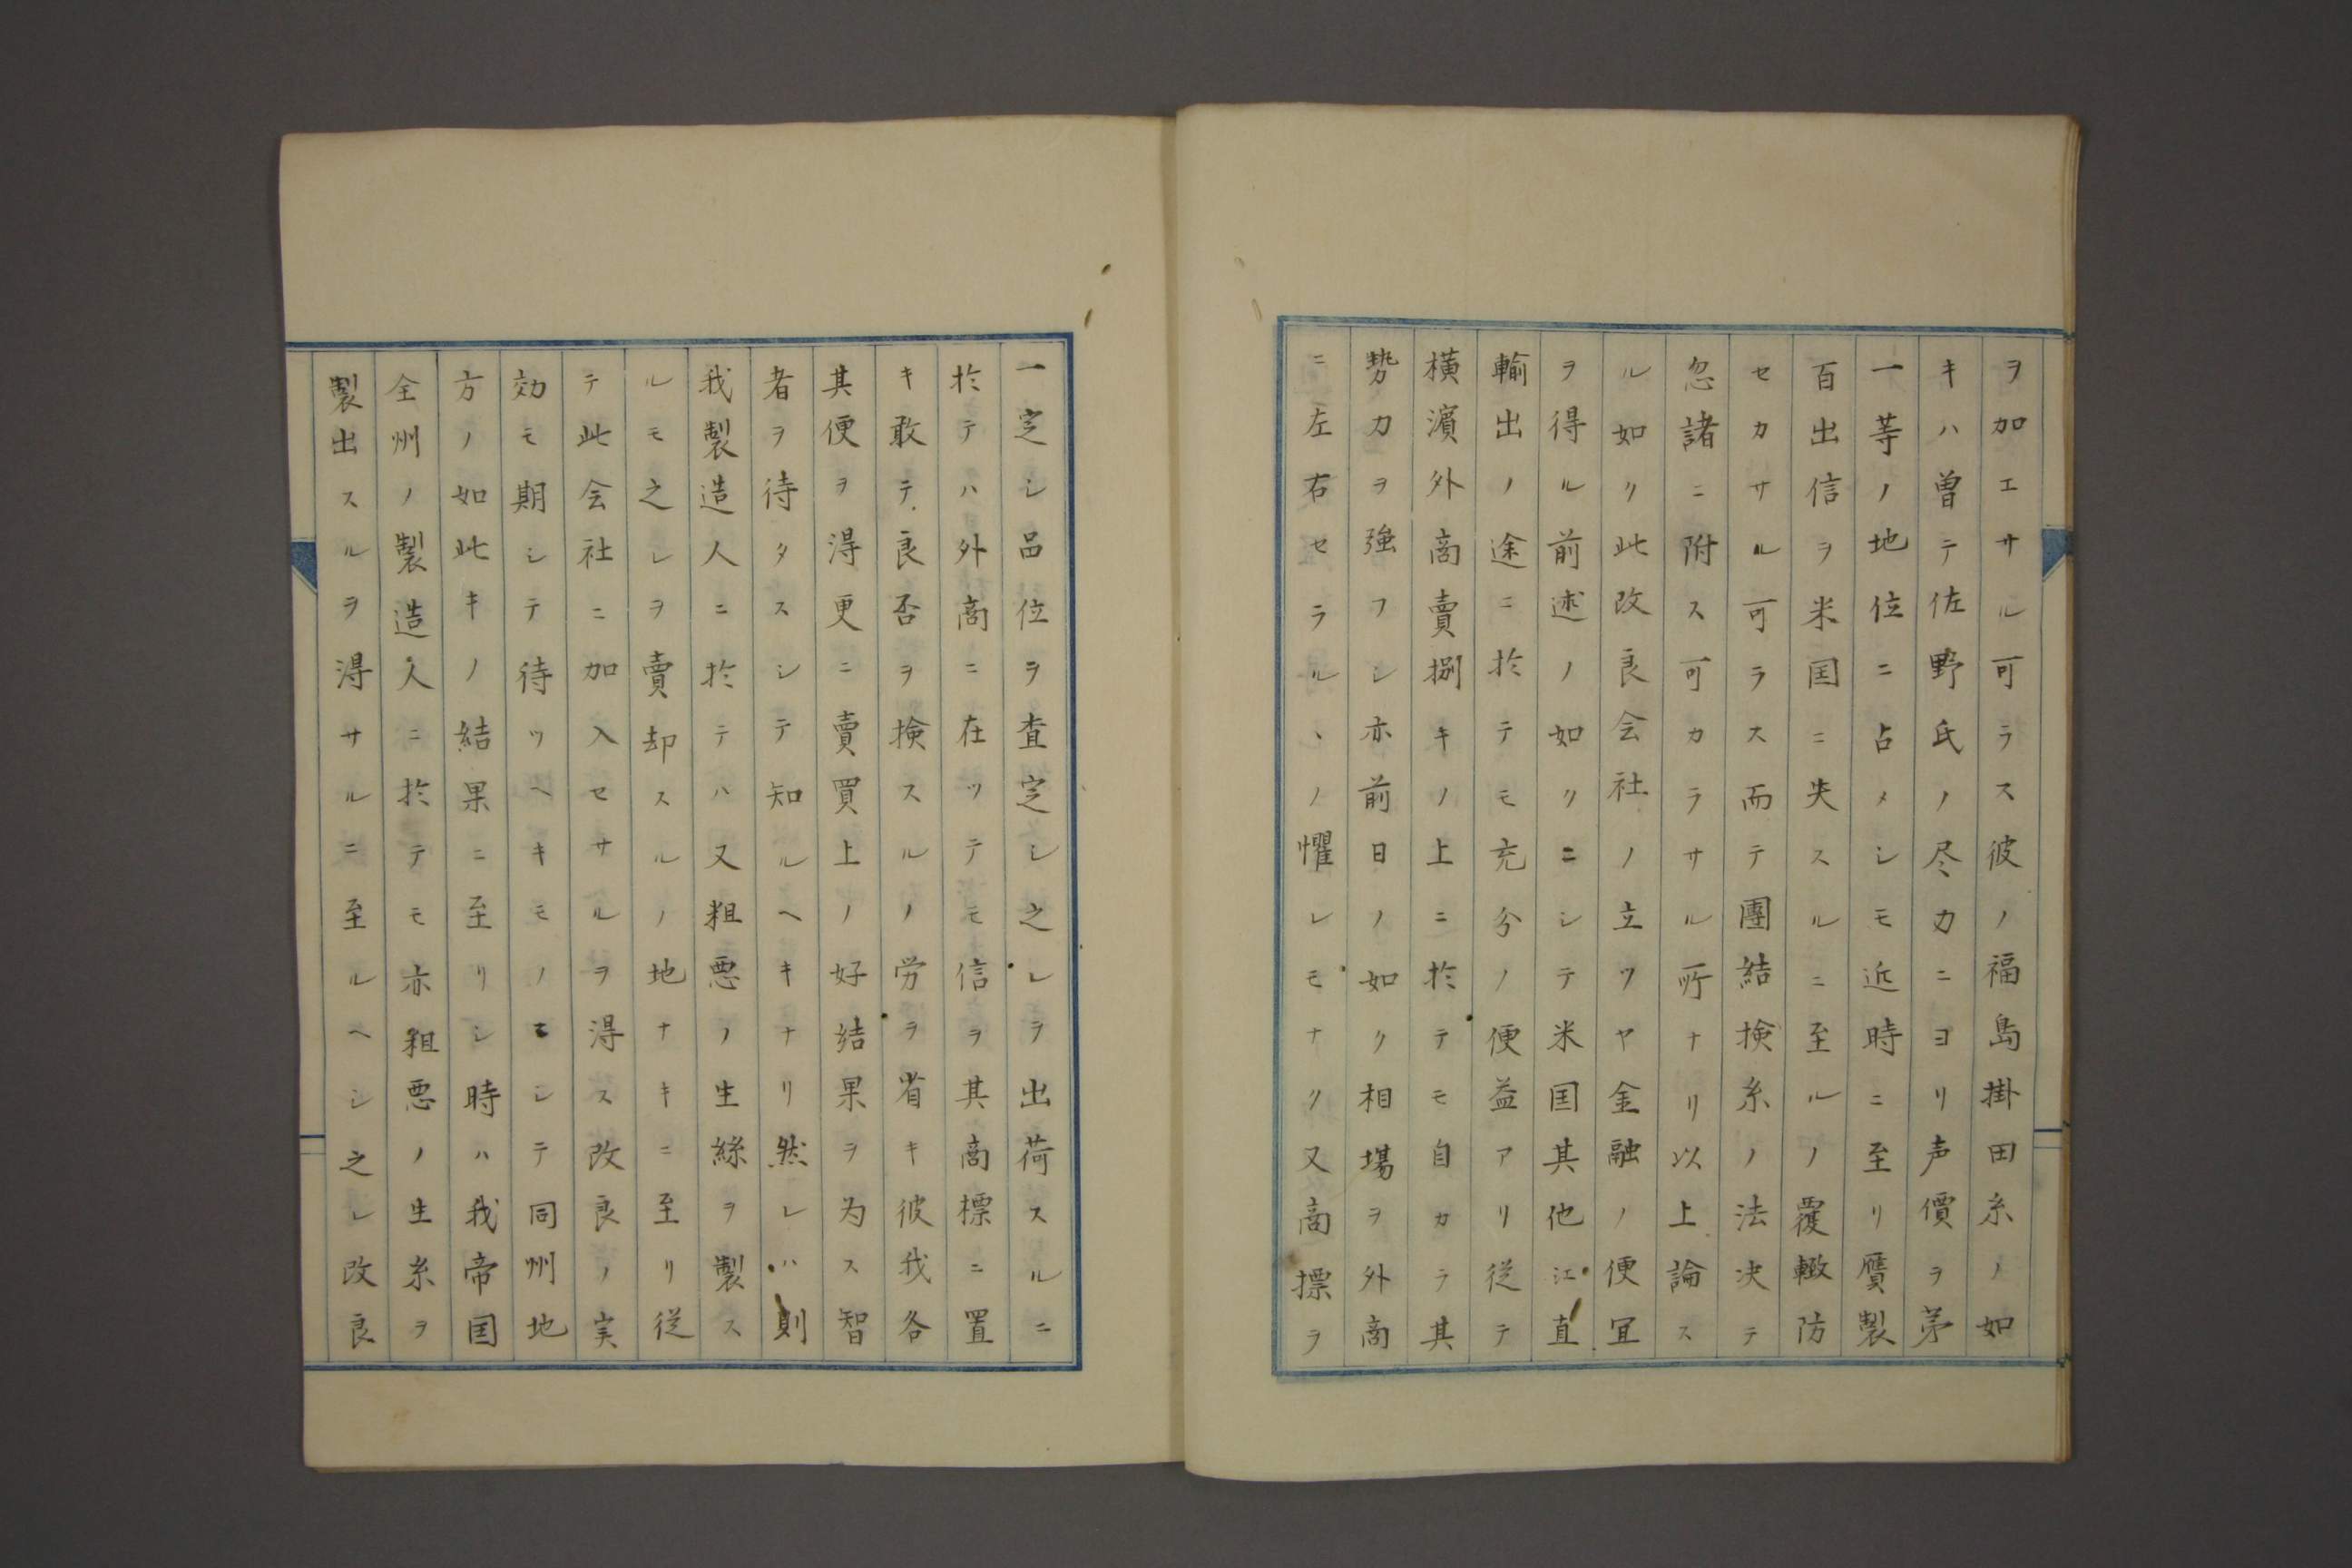 ヲ加エサル可ラス彼ノ福島掛田糸ノ如
キハ曽テ佐野氏ノ尽力ニヨリ声價ヲ苐
一等ノ地位ニ占メシモ近時ニ至リ贋製
百出信ヲ米国ニ失スルニ至ルノ覆轍防
セカサル可ラス而テ團結検糸ノ法决テ
忽諸ニ附ス可カラサル所ナリ以上論ス
ル如ク此改良会社ノ立ツヤ金融ノ便冝
ヲ得ル前述ノ如クニシテ米国其他江直
輸出ノ途ニ於テモ充分ノ便益アリ従テ
横濱外商賣捌キノ上ニ於テモ自カラ其
勢力ヲ強フシ亦前日ノ如ク相場ヲ外商
ニ左右セラルヽノ懼レモナク又商摽ヲ
一定シ品位ヲ査定シ之レヲ出荷スルニ
於テハ外商ニ在ッテモ信ヲ其商標ニ置
キ敢テ良否ヲ検スルノ労ヲ省キ彼我各
其便ヲ得更ニ賣買上ノ好結果ヲ为ス智
者ヲ待タスシテ知ルヘキナリ然レハ則
我製造人ニ於テハ又粗悪ノ生絲ヲ製ス
ルモ之レヲ賣却スルノ地ナキニ至リ従
テ此会社ニ加入セサルヲ得ス改良ノ実
効モ期シテ待ツヘキモノニシテ同州地
方ノ如此キノ結果ニ至リシ時ハ我帝国
全州ノ製造人ニ於テモ亦粗悪ノ生糸ヲ
製出スルヲ得サルニ至ルヘシ之レ改良